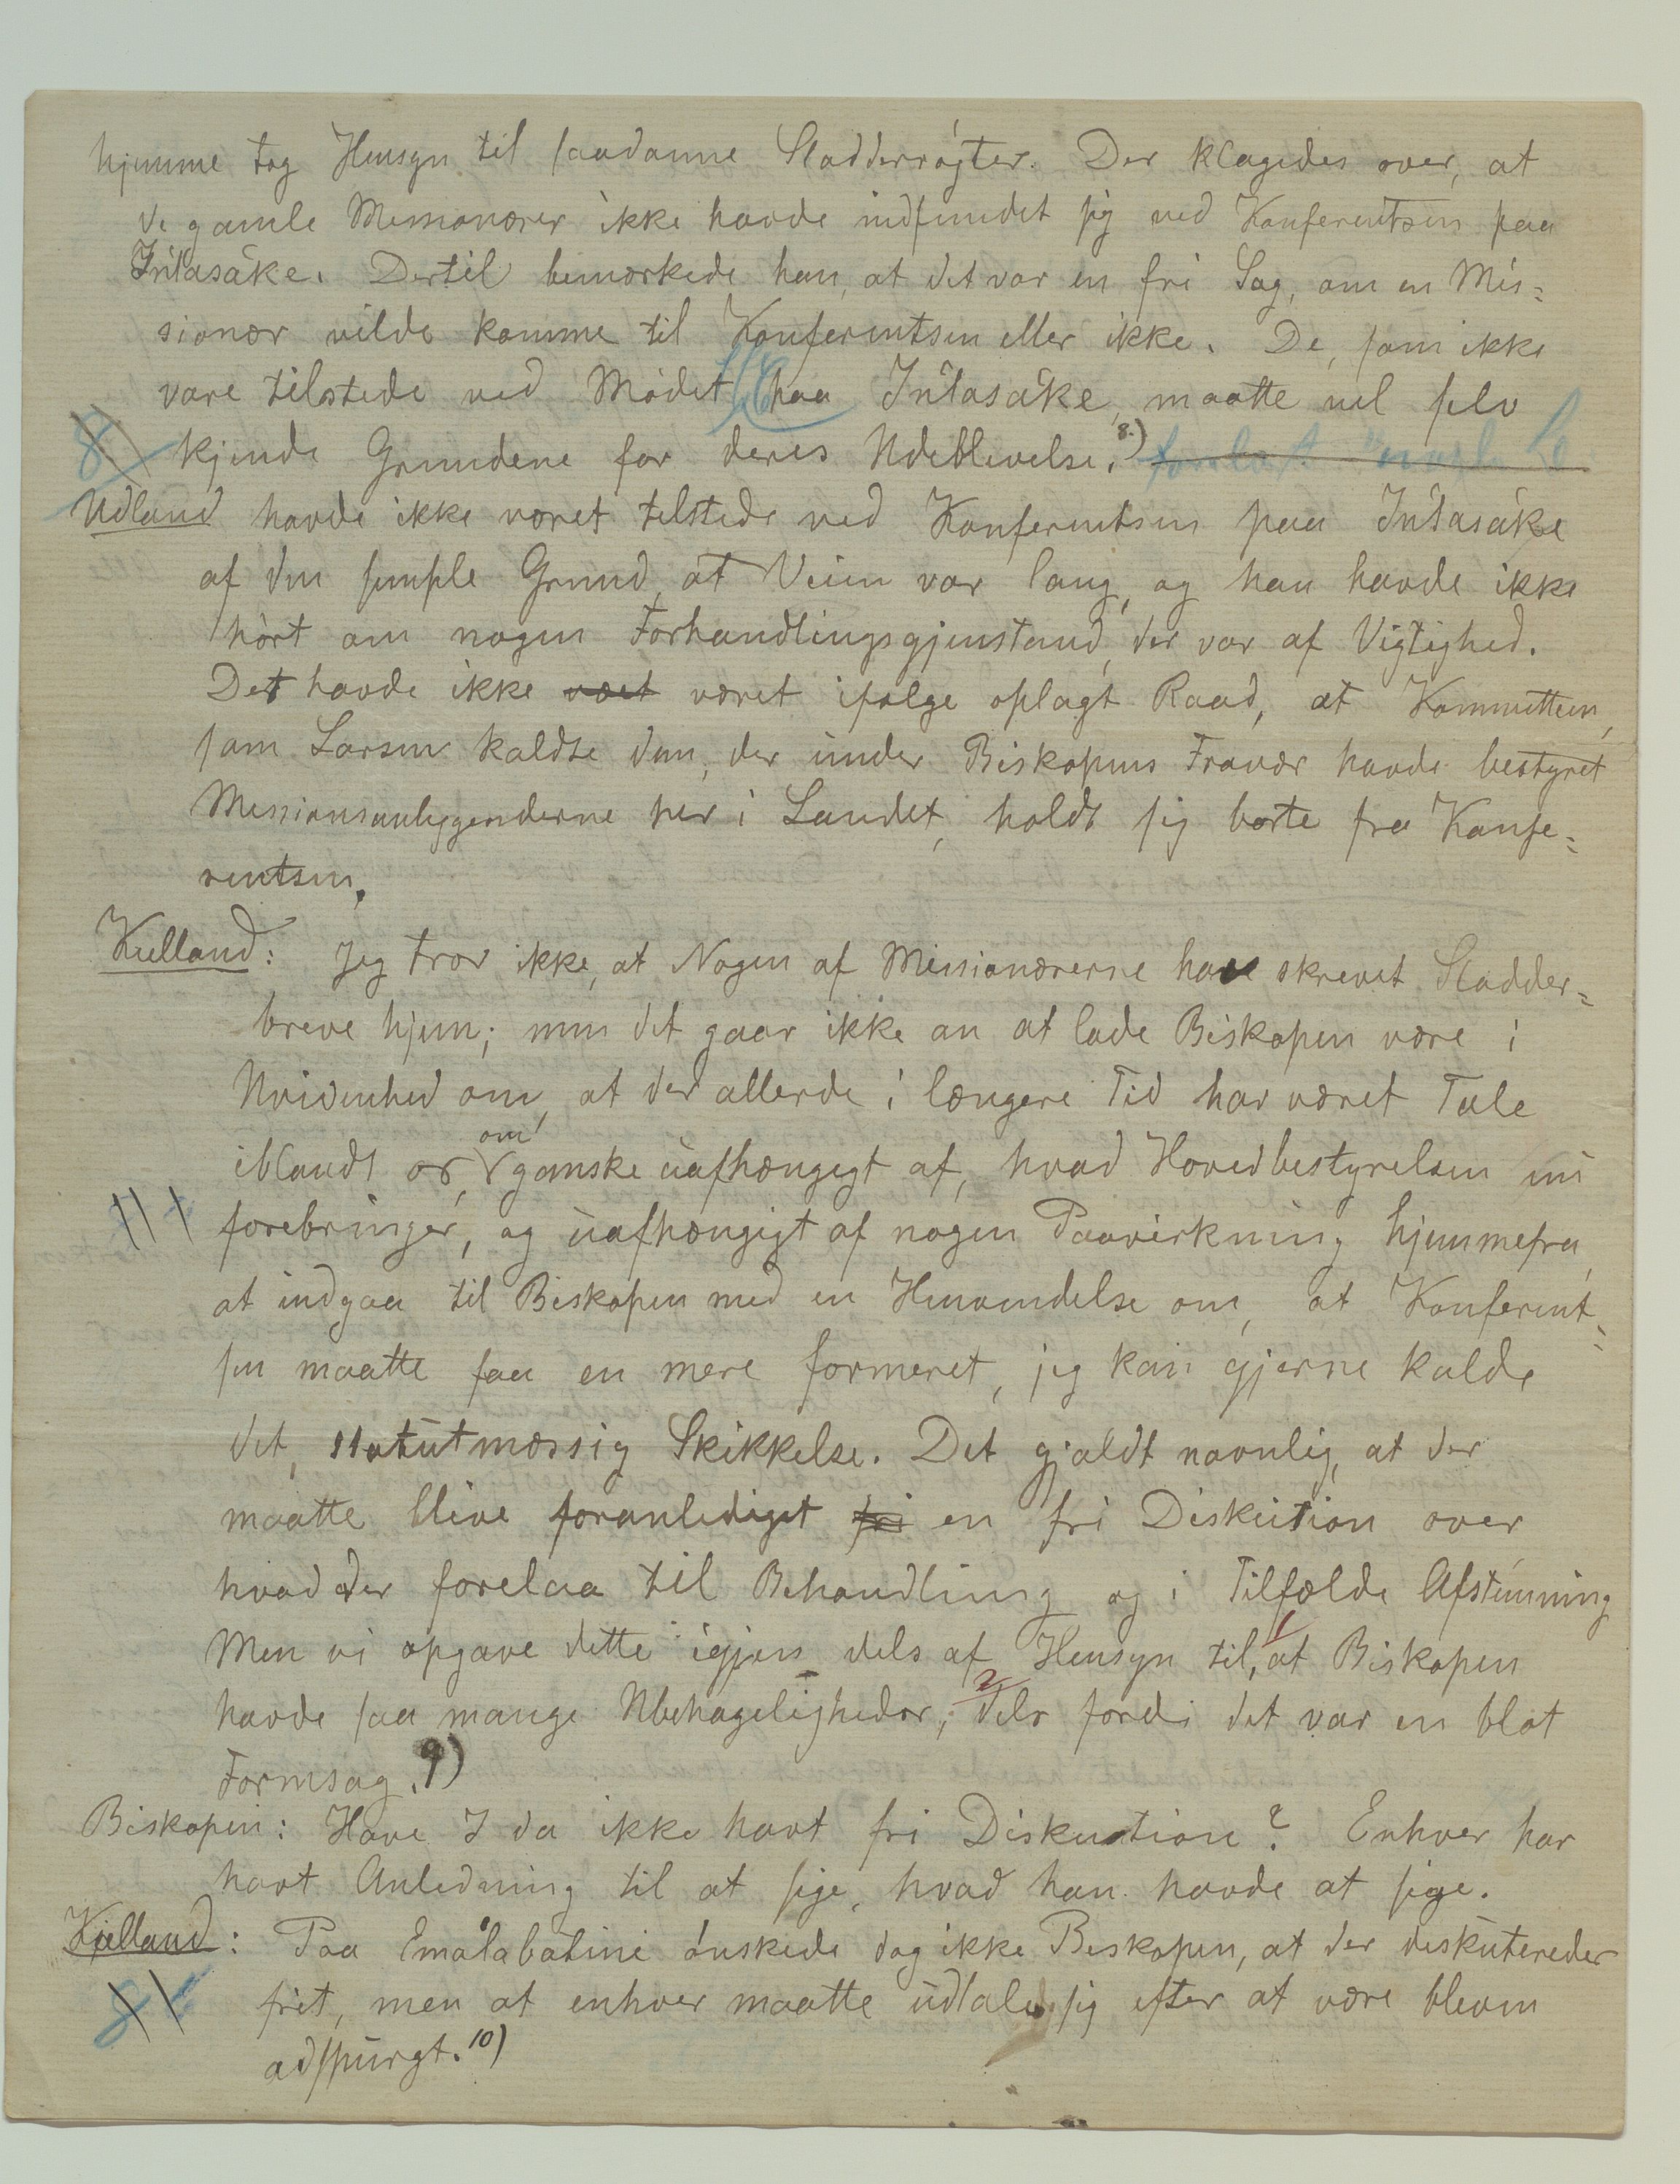 hjemme tog Hensyn til saadanne Sladderrøgter. Der klagedes over, at
de gamle Missionærer ikke havde indfundet sig ved Konferentsen paa
Intasåke. Dertil bemærkede han, at det var en fri Sag, om en Mis-
sionær vilde komme til Konferentsen eller ikke. De, som ikke
vare tilstede ved Mødet paa Intasåke, maatte vel selv
kjende Grundene for deres Udeblivelse. 8.)
Udland havde ikke været tilstede ved Konferentsen paa Intasåke
af den simple Grund, at Veien var lang, og han havde ikke
hørt om nogen Forhandlingsgjenstand, der var af Vigtighed.
Det havde ikke været ifølge oplagt Raad, at Kommitteen,
som Larsen kaldte den, der under Biskopens Fravær havde bestyret
Missionsanliggenderne her i Landet, holdt sig borte fra Konfe-
rentsen.
Kielland: Jeg tror ikke, at Nogen af Missionærerne have skrevet Sladder-
breve hjem; men det gaar ikke an at lade Biskopen være i
Uvidenhed om, at der allerde i længere Tid har været Tale
iblandt os, om ganske uafhængigt af, hvad Hovedbestyrelsen nu
forebringer, og uafhængigt af nogen Paavirkning hjemmefra,
at indgaa til Biskopen med en Henvendelse om, at Konferent-
sen maatte faa en mere formeret, jeg kan gjerne kalde
det, statutmæssig Skikkelse. Det gjaldt navnlig, at der
maatte blive foranlediget fri en fri Diskution over
hvad der forelaa til Behandling og i Tilfælde Afstemning
Men vi opgave dette igjen dels af Hensyn til, at Biskopen
havde saa mange Ubehageligheder, dels fordi det var en blot
Formsag. 9)
Biskopen: Have I da ikke havt fri Diskution? Enhver har
havt Anledning til at sige, hvad han havde at sige.
Kielland: Paa Emålabatini ønskede dog ikke Biskopen, at der diskuteredes
frit, men at enhver maatte udtale sig efter at være bleven
adspurgt. 10)